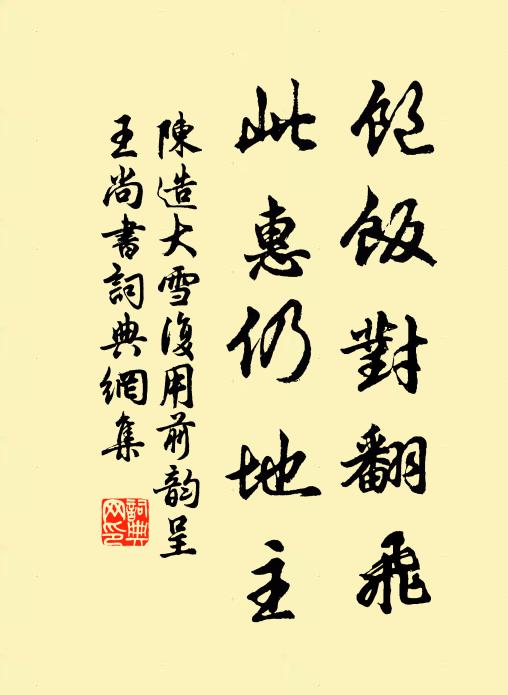 飽飯對翻飛
此惠仍地主
陳造大雪復用前韵呈
王尚書詞典網集
詞典
网印